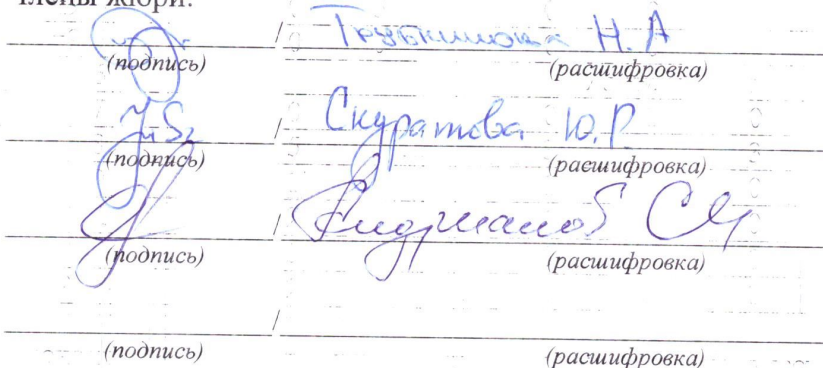 Члены жюри:
/ Н. А
(подпись) (расшифровка)
/ Скуратова Ю.Р.
(подпись) (расшифровка)
/
(подпись) (расшифровка)
/
(подпись) (расшифровка)